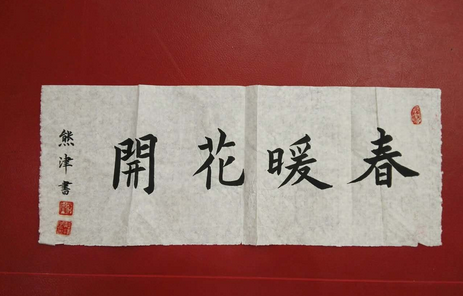 春暖花開
熊津書